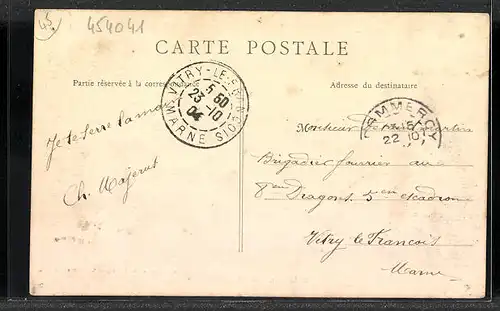 45
454041
CARTE POSTALE
Partie réservée à la correspondance
Adresse du destinataire
VITRY-LE-FRANÇOIS
5 50
23 -10
04
MARNE
COMMERCY
22 10
Je te serre la main
Ch. Majerus
Monsieur
Brigadier fourrier au
8eme Dragons 5en escadron
Vitry le Francois
Marne